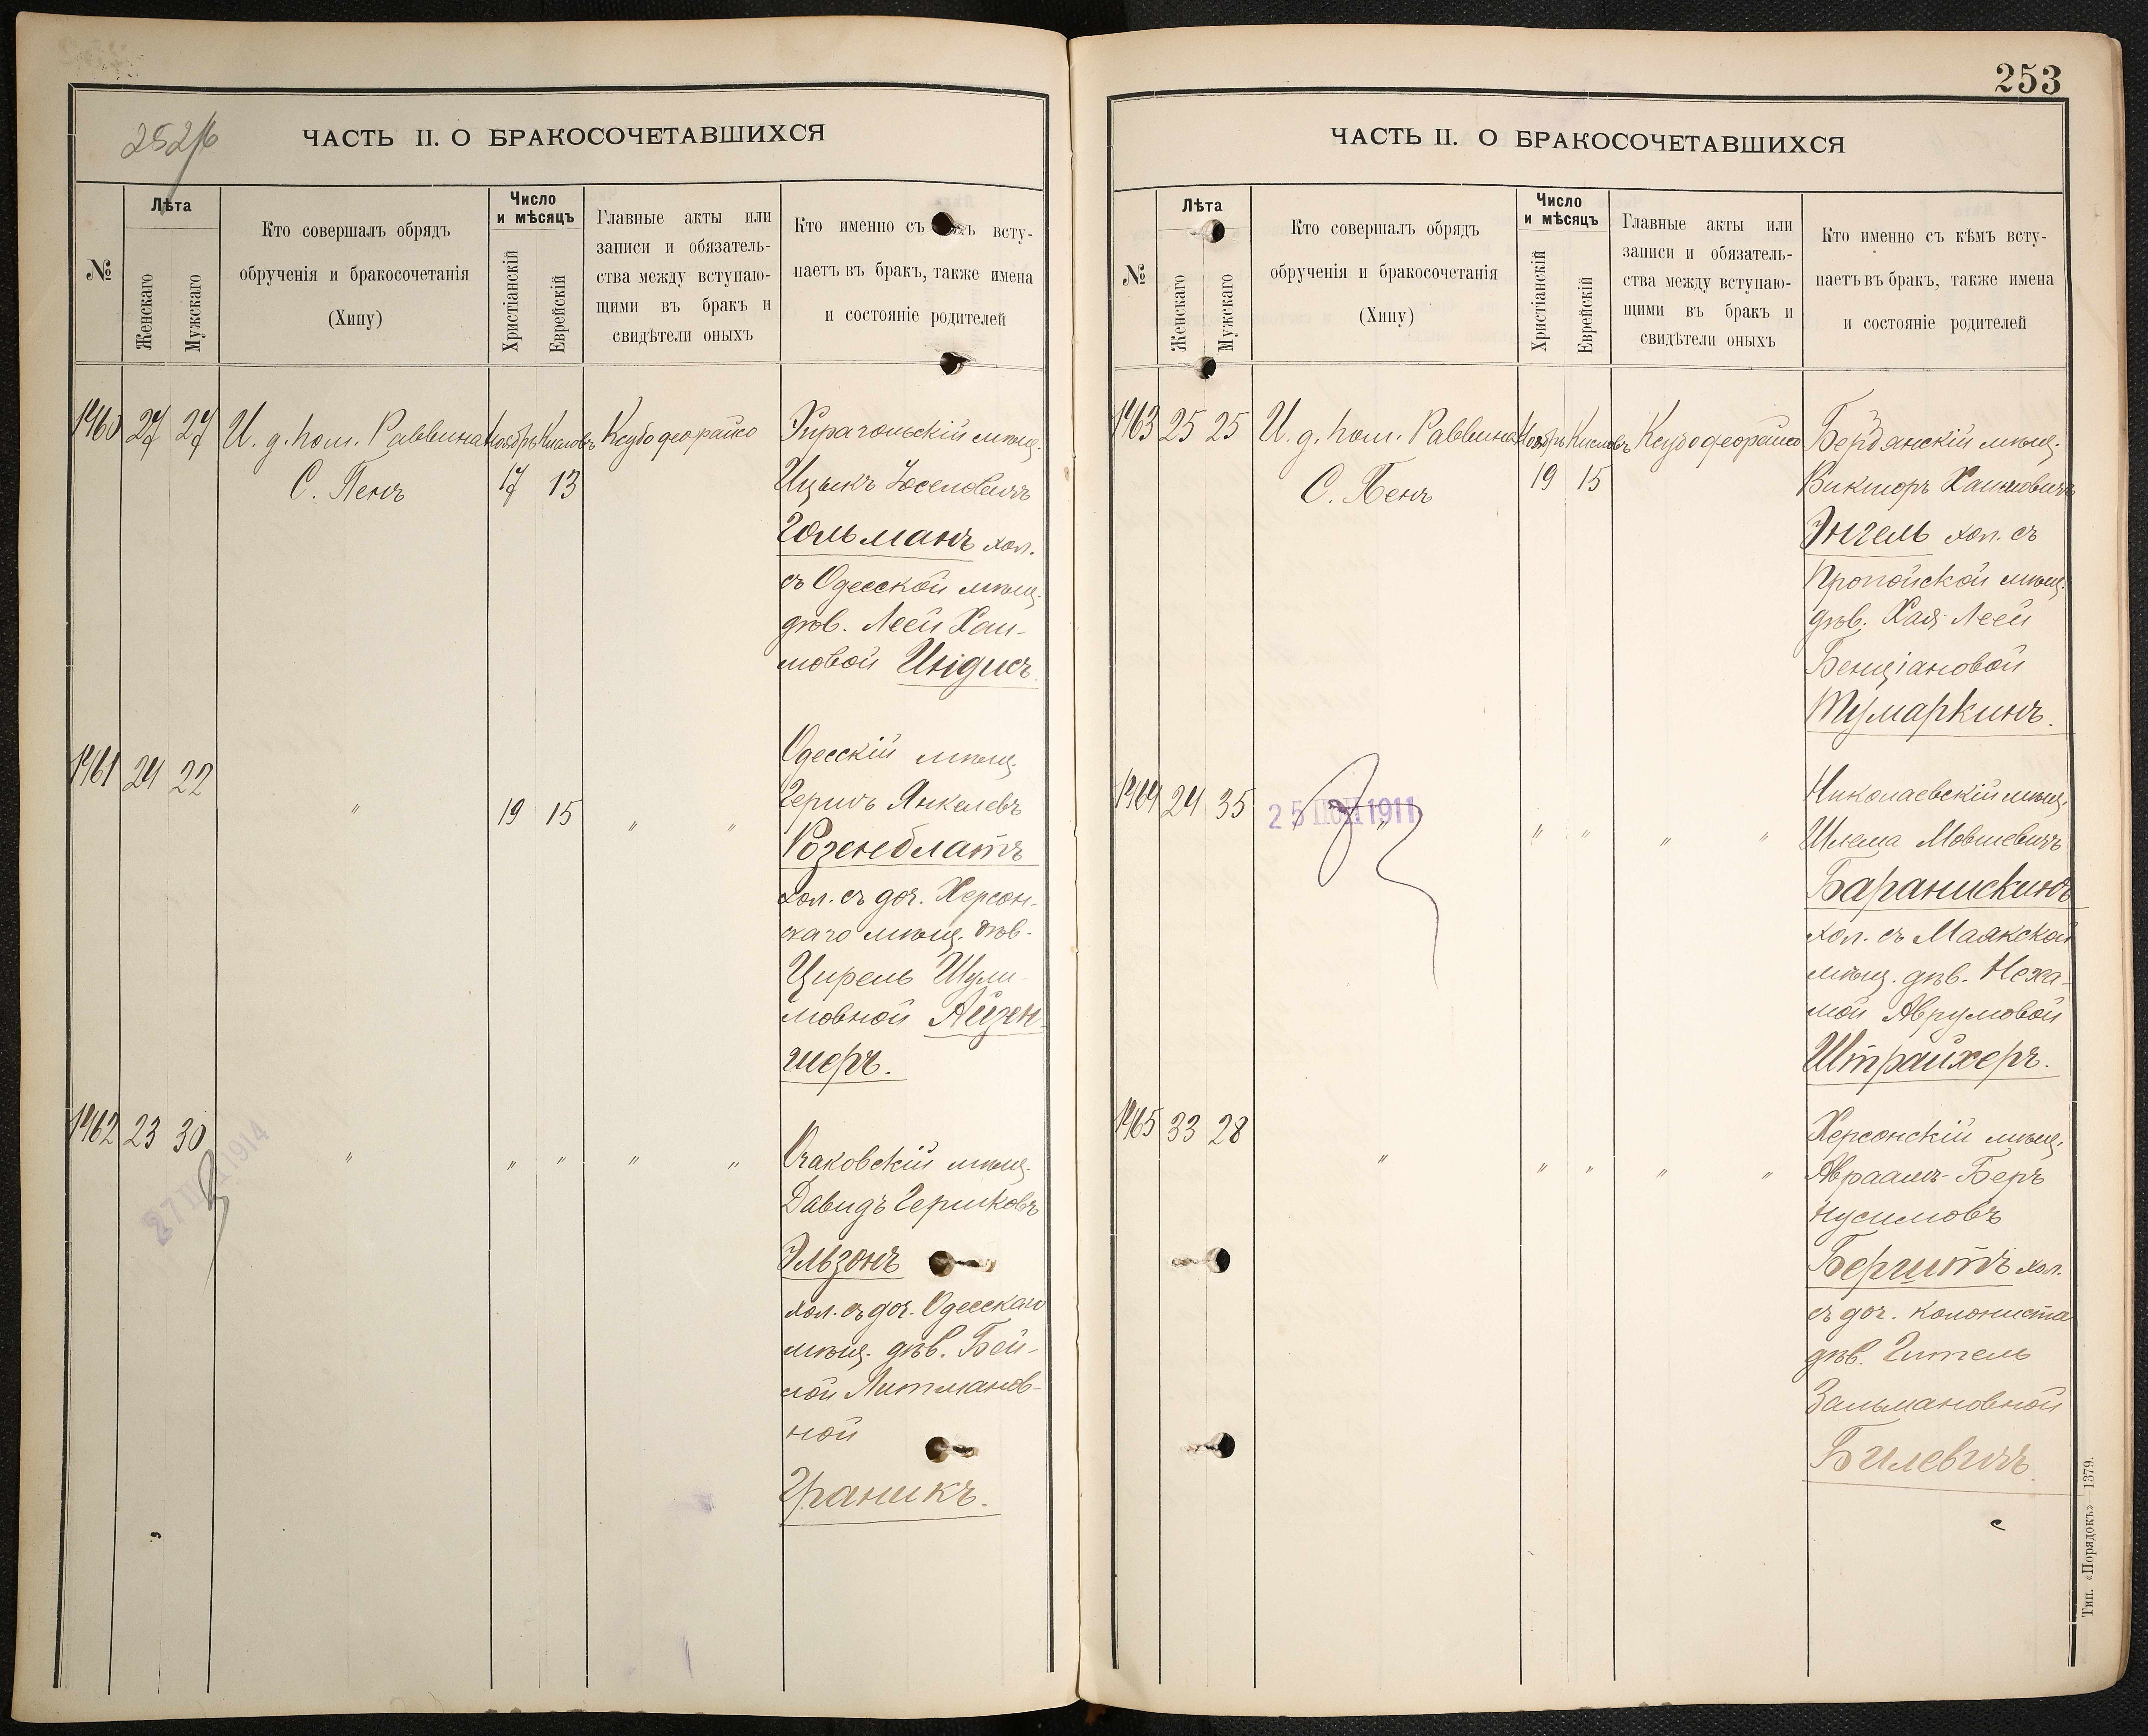 252/б
ЧАСТЬ II. О БРАКОСОЧЕТАВШИХСЯ
№
Лѣта
Женскаго
Мужскаго
Кто совершалъ обрядъ
обрученія и бракосочетанія
(Хипу)
Число
и мѣсяцъ
Христіанскій
Еврейскій
Главные акты или
записи и обязатель-
ства между вступаю-
щими въ бракъ и
свидѣтели оныхъ
Кто именно съ вступаетъ
паетъ въ бракъ, также имена
и состояніе родителей
1460 27 27 И. д. пом. Раввина Ноябрь Кислевъ Ксубо деорайсо
С. Пенъ 17 13
Тирасольскій мѣщ.
Ицыкъ Іосеповичъ
Гольманъ хол.
съ Одесской мѣщ.
дѣв. Леей Хаи-
мовой Индисъ.
1461 24 22 " 19 15 " "
Одесскій мѣщ.
Гершъ Янкелевъ
Розенблатъ
хол. съ доч. Херсон-
скаго мѣщ. дѣв.
Цирель Шули-
мовной Айзен-
шеръ.
1462 23 30 " " " " "
27 1914
Очаковскій мѣщ.
Давидъ Гершковъ
Эльзонъ
хол. съ доч. Одесскаго
мѣщ. дѣв. Бей-
лой Литманов-
ной
Граникъ.
253
ЧАСТЬ II. О БРАКОСОЧЕТАВШИХСЯ
№
Лѣта
Женскаго
Мужскаго
Кто совершалъ обрядъ
обрученія и бракосочетанія
(Хипу)
Число
и мѣсяцъ
Христіанскій
Еврейскій
Главные акты или
записи и обязатель-
ства между вступаю-
щими въ бракъ и
свидѣтели оныхъ
Кто именно съ кѣмъ всту-
паетъ въ бракъ, также имена
и состояніе родителей
1463 25 25 И. д. пом. Раввина Ноябрь Кислевъ Ксубо деорайсо
С. Пенъ 19 15
Бердянскій мѣщ.
Викторъ Хаимовичъ
Энгель хол. съ
Пропойской мѣщ.
дѣв. Хая-Леей
Бенціановой
Тумаркинъ.
1464 24 35 " " " " "
25 1911
Николаевскій мѣщ.
Шлема Мовшевичъ
Баранискинъ
хол. съ Маякской
мѣщ. дѣв. Неха-
мой Аврумовой
Штрайхеръ.
1465 33 28 " " " " "
Херсонскій мѣщ.
Авраамъ-Беръ
Нусимовъ
Бергитъ хол.
съ доч. колониста
дѣв. Гитель
Зальмановной
Билевичъ.
Тип. «Порядокъ»—1379.